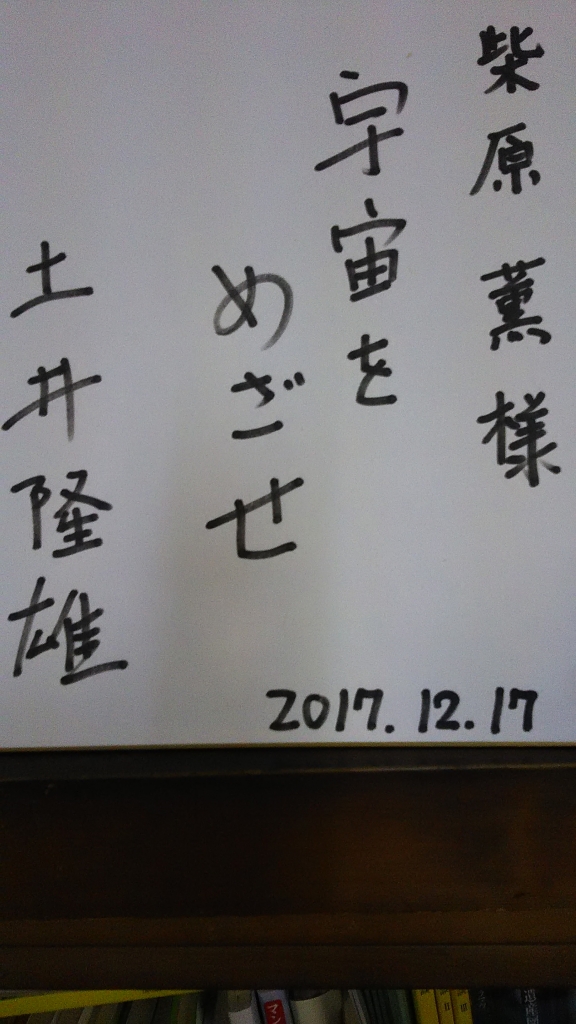 柴原 薫 様
宇宙を
めざせ
土井隆雄
2017.12.17
マン